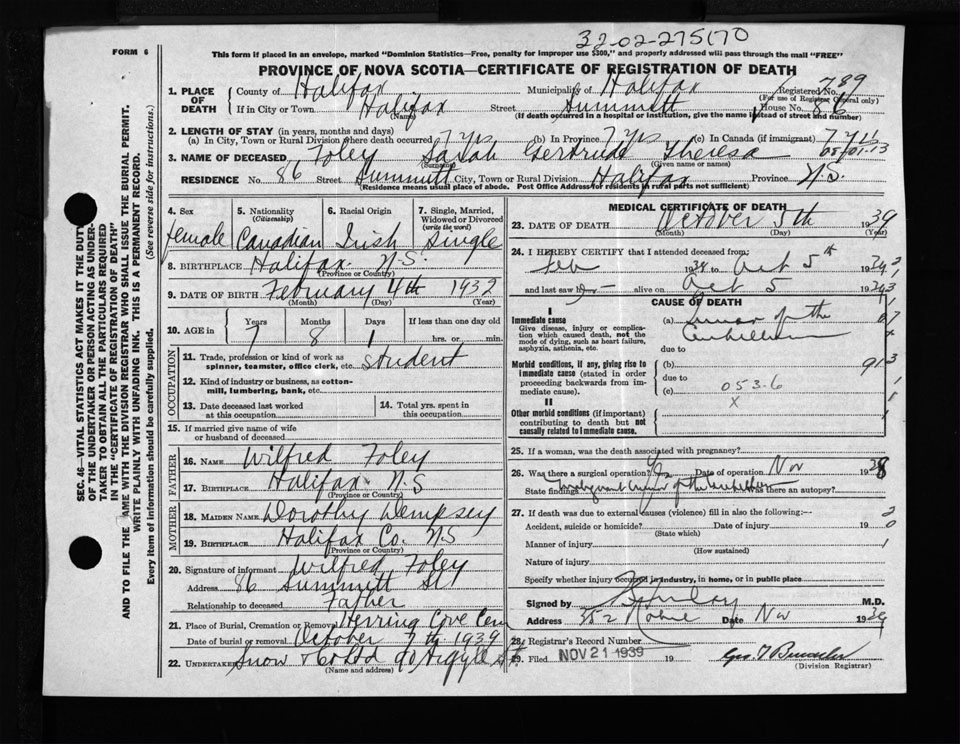 32-02-275170
FORM 6
This form if placed in an envelope, marked "Dominion Statistics—Free, penalty for improper use $300," and properly addressed will pass through the mail "FREE"
PROVINCE OF NOVA SCOTIA—CERTIFICATE OF REGISTRATION OF DEATH
SEC. 46—VITAL STATISTICS ACT MAKES IT THE DUTY
OF THE UNDERTAKER OR PERSON ACTING AS UNDER-
TAKER TO OBTAIN ALL THE PARTICULARS REQUIRED
IN THE "CERTIFICATE OF REGISTRATION OF DEATH"
AND TO FILE THE SAME WITH THE DIVISION REGISTRAR WHO SHALL ISSUE THE BURIAL PERMIT.
WRITE PLAINLY WITH UNFADING INK. THIS IS A PERMANENT RECORD.
Every item of information should be carefully supplied. (See reverse side for instructions.)
1. PLACE OF DEATH
County of Halifax Municipality of Halifax Registered No. 789
(For use of Registrar General only)
If in City or Town Halifax Street Summitt House No. 86
(Name) (If death occurred in a hospital or institution, give the name instead of street and number)
2. LENGTH OF STAY (in years, months and days)
(a) In City, Town or Rural Division where death occurred 7 yrs (b) In Province 7 yrs (c) In Canada (if immigrant) 7 yrs
3. NAME OF DECEASED Foley Sarah Gertrude Theresa
(Surname) (Given name or names)
RESIDENCE No. 86 Street Summitt City, Town or Rural Division Halifax Province N.S.
(Residence means usual place of abode. Post Office Address for residents in rural parts not sufficient)
4. Sex female
5. Nationality (Citizenship) Canadian
6. Racial Origin Irish
7. Single, Married, Widowed or Divorced (write the word) Single
8. BIRTHPLACE Halifax N.S.
(Province or Country)
9. DATE OF BIRTH February 4th 1932
(Month) (Day) (Year)
10. AGE in Years Months Days If less than one day old
7 8 1 hrs. or min.
OCCUPATION
11. Trade, profession or kind of work as
spinner, teamster, office clerk, etc. Student
12. Kind of industry or business, as cotton-
mill, lumbering, bank, etc.
13. Date deceased last worked at this occupation
14. Total yrs. spent in this occupation
15. If married give name of wife
or husband of deceased
FATHER
16. NAME Wilfred Foley
17. BIRTHPLACE Halifax N.S
(Province or Country)
MOTHER
18. MAIDEN NAME Dorothy Dempsey
19. BIRTHPLACE Halifax Co. N.S
(Province or Country)
20. Signature of informant Wilfred Foley
Address 86 Summitt St
Relationship to deceased Father
21. Place of Burial, Cremation or Removal Herring Cove Cem
Date of burial or removal October 7th 1939
22. UNDERTAKER Snow & Co Ltd 90 Argyle St
(Name and address)
MEDICAL CERTIFICATE OF DEATH
23. DATE OF DEATH October 5th 1939
(Month) (Day) (Year)
24. I HEREBY CERTIFY that I attended deceased from:
Feb 1938 to Oct 5th 1939
and last saw h alive on Oct 5 1939
CAUSE OF DEATH
I
Immediate cause
Give disease, injury or complica-
tion which caused death, not the
mode of dying, such as heart failure,
asphyxia, asthenia, etc.
(a) Tumor of the
Cerebellum
due to
Morbid conditions, if any, giving rise to
immediate cause (stated in order
proceeding backwards from im-
mediate cause).
(b)
due to
(c) 053-6
X
II
Other morbid conditions (if important)
contributing to death but not
causally related to immediate cause.
25. If a woman, was the death associated with pregnancy?
26. Was there a surgical operation? Yes Date of operation Nov 1938
State findings Malignant tumor of the cerebellum Was there an autopsy?
27. If death was due to external causes (violence) fill in also the following:—
Accident, suicide or homicide? Date of injury 19
(State which)
Manner of injury
(How sustained)
Nature of injury
Specify whether injury occurred in industry, in home, or in public place
Signed by M.D.
Address 352 Robie Date Nov 1939
28. Registrar's Record Number
29. Filed NOV 21 1939 19
(Division Registrar)